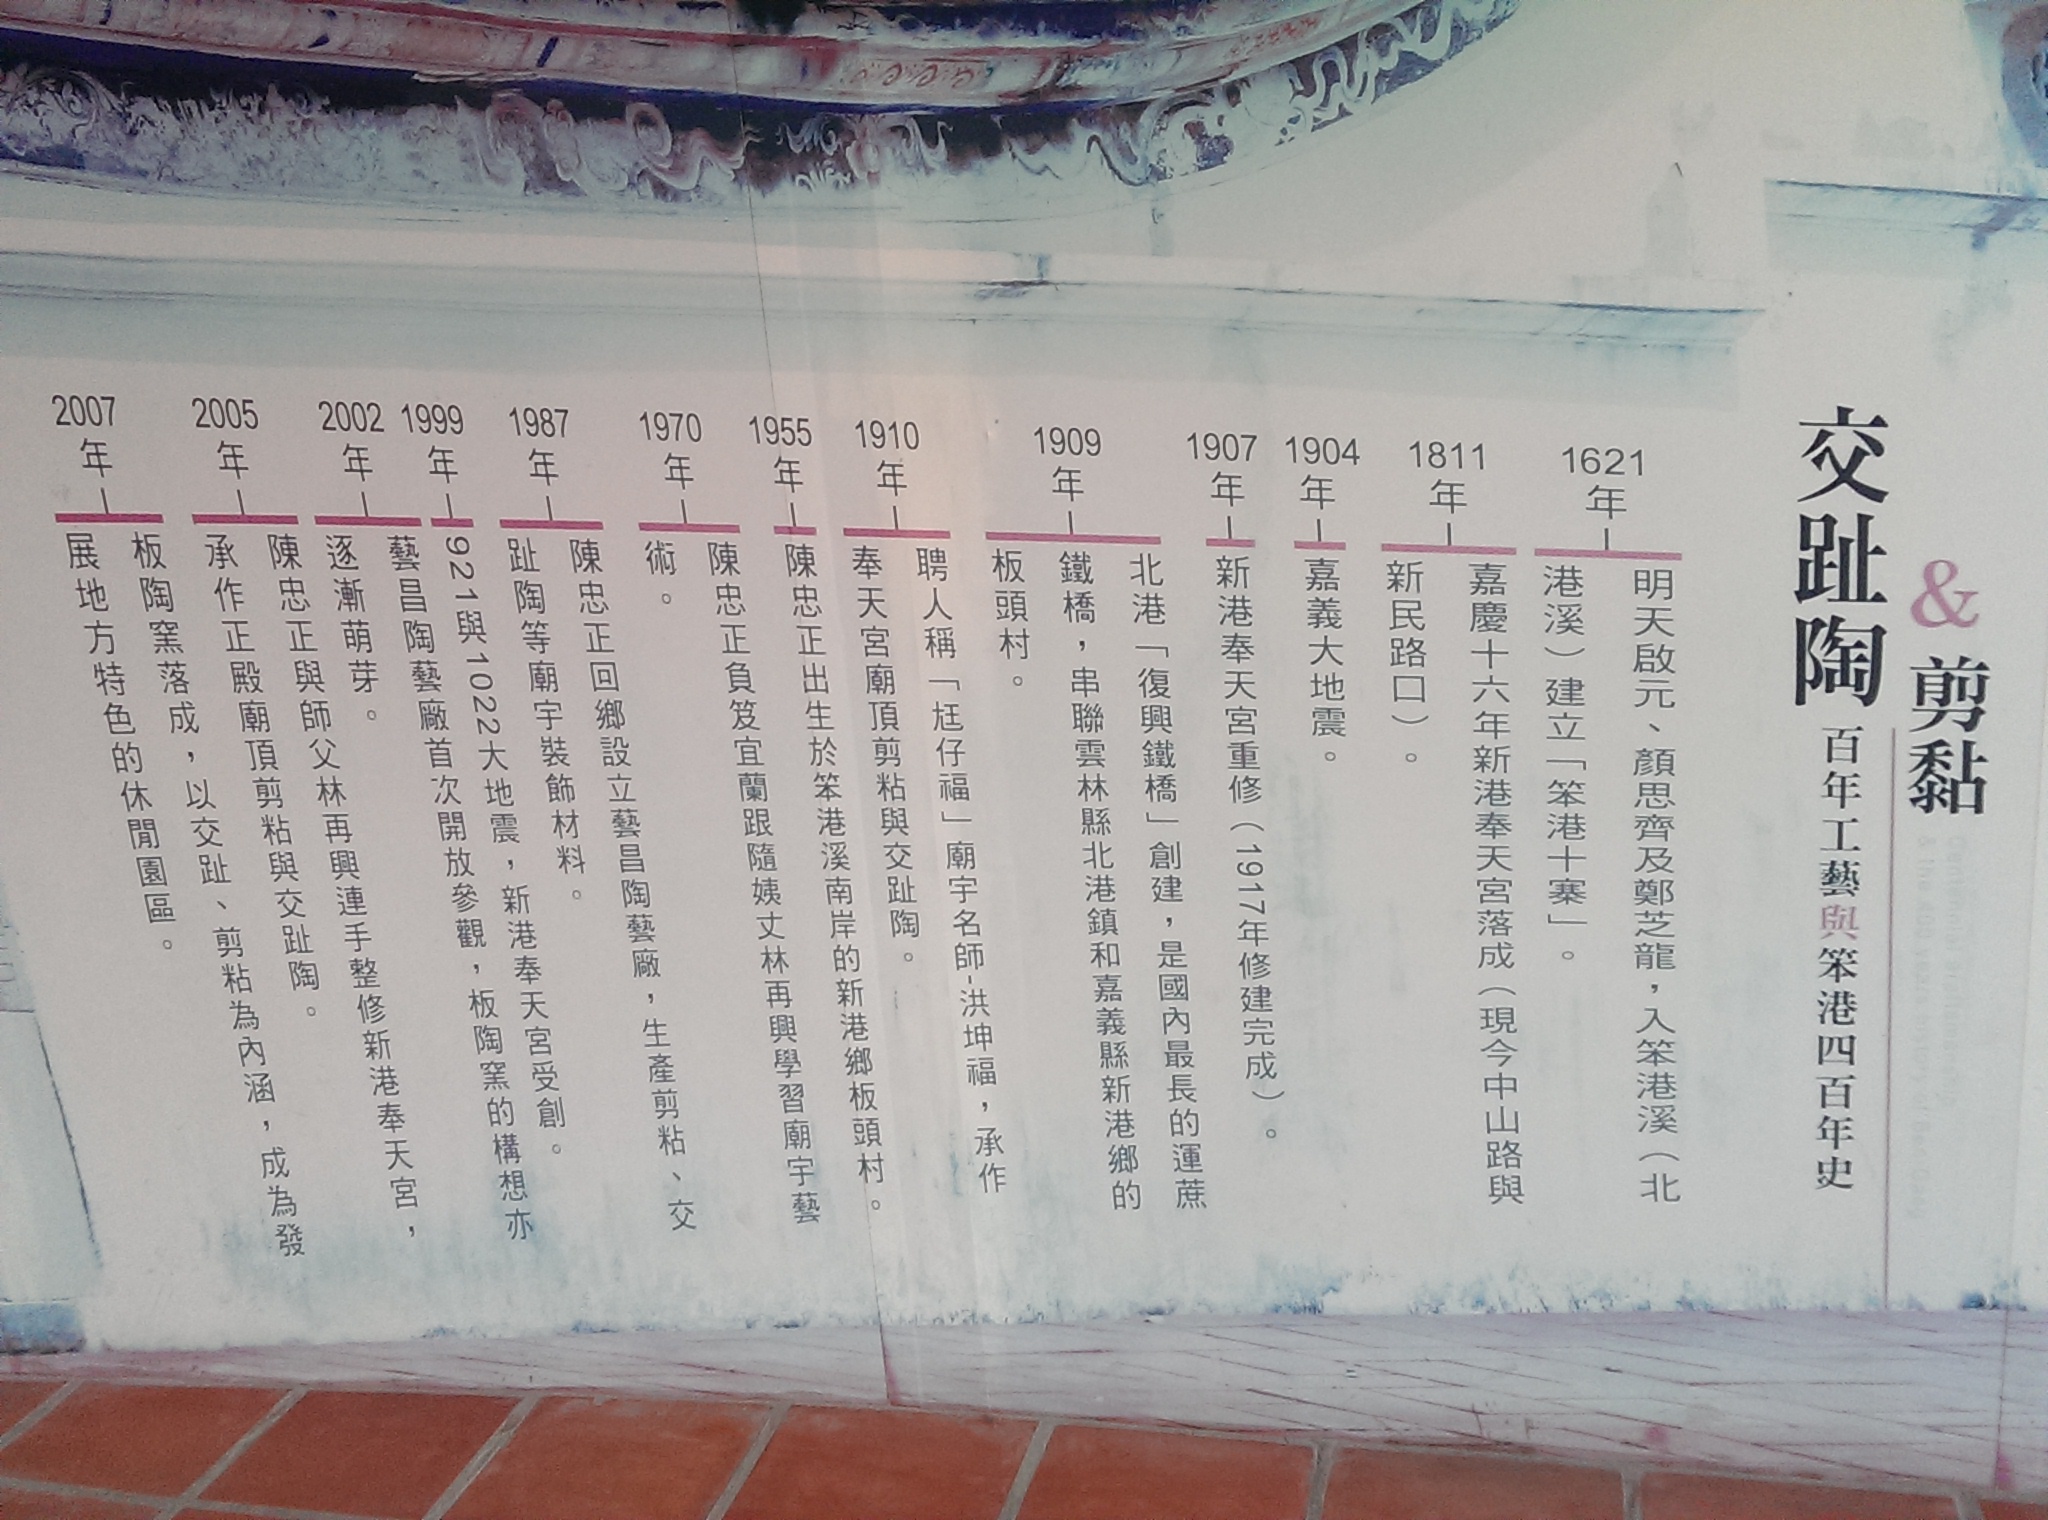 交趾陶
& 剪黏
百年工藝與笨港四百年史
1621年
明天啟元、顏思齊及鄭芝龍，入笨港溪（北
港溪）建立「笨港十寨」。
1811年
嘉慶十六年新港奉天宮落成（現今中山路與
新民路口）。
1904年
嘉義大地震。
1907年
新港奉天宮重修（1917年修建完成）。
1909年
北港「復興鐵橋」創建，是國內最長的運蔗
鐵橋，串聯雲林縣北港鎮和嘉義縣新港鄉的
板頭村。
1910年
聘人稱「尪仔福」廟宇名師-洪坤福，承作
奉天宮廟頂剪粘與交趾陶。
1955年
陳忠正出生於笨港溪南岸的新港鄉板頭村。
1970年
陳忠正負笈宜蘭跟隨姨丈林再興學習廟宇藝
術。
1987年
陳忠正回鄉設立藝昌陶藝廠，生產剪粘、交
趾陶等廟宇裝飾材料。
1999年
921與1022大地震，新港奉天宮受創。
2002年
藝昌陶藝廠首次開放參觀，板陶窯的構想亦
逐漸萌芽。
2005年
陳忠正與師父林再興連手整修新港奉天宮，
承作正殿廟頂剪粘與交趾陶。
2007年
板陶窯落成，以交趾、剪粘為內涵，成為發
展地方特色的休閒園區。